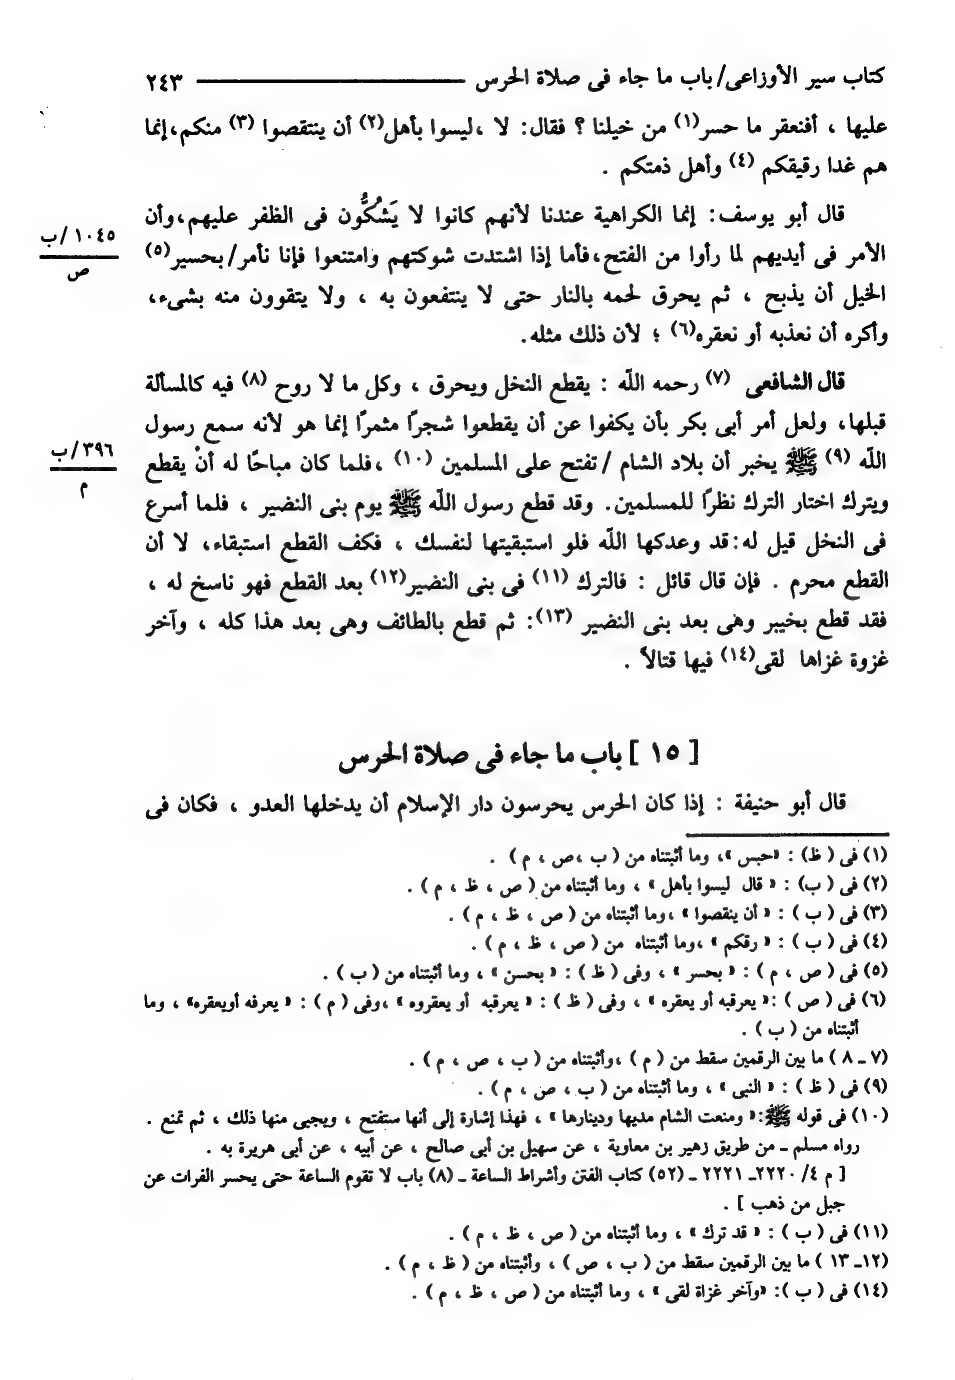 كتاب سير الأوزاعى/ باب ما جاء فى صلاة الحرس ٢٤٣
عليها ، أفنعقر ما حسر(١) من خيلنا ؟ فقال: لا ،ليسوا بأهل(٢) أن ينتقصوا (٣) منكم،إنما
هم غدا رقيقكم (٤) وأهل ذمتكم .
قال أبو يوسف: إنما الكراهية عندنا لأنهم كانوا لا يَشكُّون فى الظفر عليهم،وأن
١٠٤٥/ب
ص
الأمر فى أيديهم لما رأوا من الفتح،فأما إذا اشتدت شوكتهم وامتنعوا فإنا نأمر/ بحسير(٥)
الخيل أن يذبح ، ثم يحرق لحمه بالنار حتى لا ينتفعون به ، ولا يتقوون منه بشىء،
وأكره أن نعذبه أو نعقره(٦) ؛ لأن ذلك مثله.
قال الشافعى (٧) رحمه اللّه : يقطع النخل ويحرق ، وكل ما لا روح (٨) فيه كالمسألة
قبلها، ولعل أمر أبى بكر بأن يكفوا عن أن يقطعوا شجرًا مثمرًا إنما هو لأنه سمع رسول
٣٩٦/ب
م
اللّه (٩) ﷺ يخبر أن بلاد الشام / تفتح على المسلمين (١٠) ،فلما كان مباحًا له أنْ يقطع
ويترك اختار الترك نظرًا للمسلمين. وقد قطع رسول اللّه ﷺ يوم بنى النضير ، فلما أسرع
فى النخل قيل له:قد وعدكها اللّه فلو استبقيتها لنفسك ، فكف القطع استبقاء، لا أن
القطع محرم . فإن قال قائل : فالترك (١١) فى بنى النضير(١٢) بعد القطع فهو ناسخ له ،
فقد قطع بخيبر وهى بعد بنى النضير (١٣): ثم قطع بالطائف وهى بعد هذا كله ، وآخر
غزوة غزاها لقى(١٤) فيها قتالاً .
[ ١٥ ] باب ما جاء فى صلاة الحرس
قال أبو حنيفة : إذا كان الحرس يحرسون دار الإسلام أن يدخلها العدو ، فكان فى
(١) فى ( ظ) : «حبس »، وما أثبتناه من ( ب ،ص ، م ) .
(٢) فى ( ب) : « قال ليسوا بأهل » ، وما أثبتناه من ( ص ، ظ ، م ) .
(٣) فى ( ب ) : « أن ينقصوا » ،وما أثبتناه من ( ص ، ظ ، م ) .
(٤) فى ( ب ) : « رقكم » ،وما أثبتناه من ( ص ، ظ ، م ) .
(٥) فى ( ص ، م ) : « بحسر » ، وفى ( ظ ) : « بحسن » ، وما أثبتناه من ( ب ) .
(٦) فى ( ص ) :« يعرقبه أو يعقره » ، وفى ( ظ ) : « يعرقبه أو يعقروه » ،وفى ( م ) : « يعرفه أويعقره» ، وما
أثبتناه من ( ب ) .
(٧ ـ ٨ ) ما بين الرقمين سقط من ( م ) ،وأثبتناه من ( ب ، ص ، م ) .
(٩) فى ( ظ ) : « النبى » ، وما أثبتناه من ( ب ، ص ، م ) .
(١٠) فى قوله ﷺ:« ومنعت الشام مديها ودينارها » ، فهذا إشارة إلى أنها ستفتح ، ويجبى منها ذلك ، ثم تمنع .
رواه مسلم ـ من طريق زهير بن معاوية ، عن سهيل بن أبى صالح ، عن أبيه ، عن أبى هريرة به .
[ م ٤/ ٢٢٢٠ـ ٢٢٢١ ـ (٥٢) كتاب الفتن وأشراط الساعة ـ (٨) باب لا تقوم الساعة حتى يحسر الفرات عن
جبل من ذهب ] .
(١١) فى ( ب ) : « قد ترك » ، وما أثبتناه من ( ص ، ظ ، م ) .
(١٢ـ ١٣ ) ما بين الرقمين سقط من ( ب ، ص ) ، وأثبتناه من ( ظ ، م ) .
(١٤) فى ( ب ): «وآخر غزاة لقى » ، وما أثبتناه من ( ص ، ظ ، م ) .